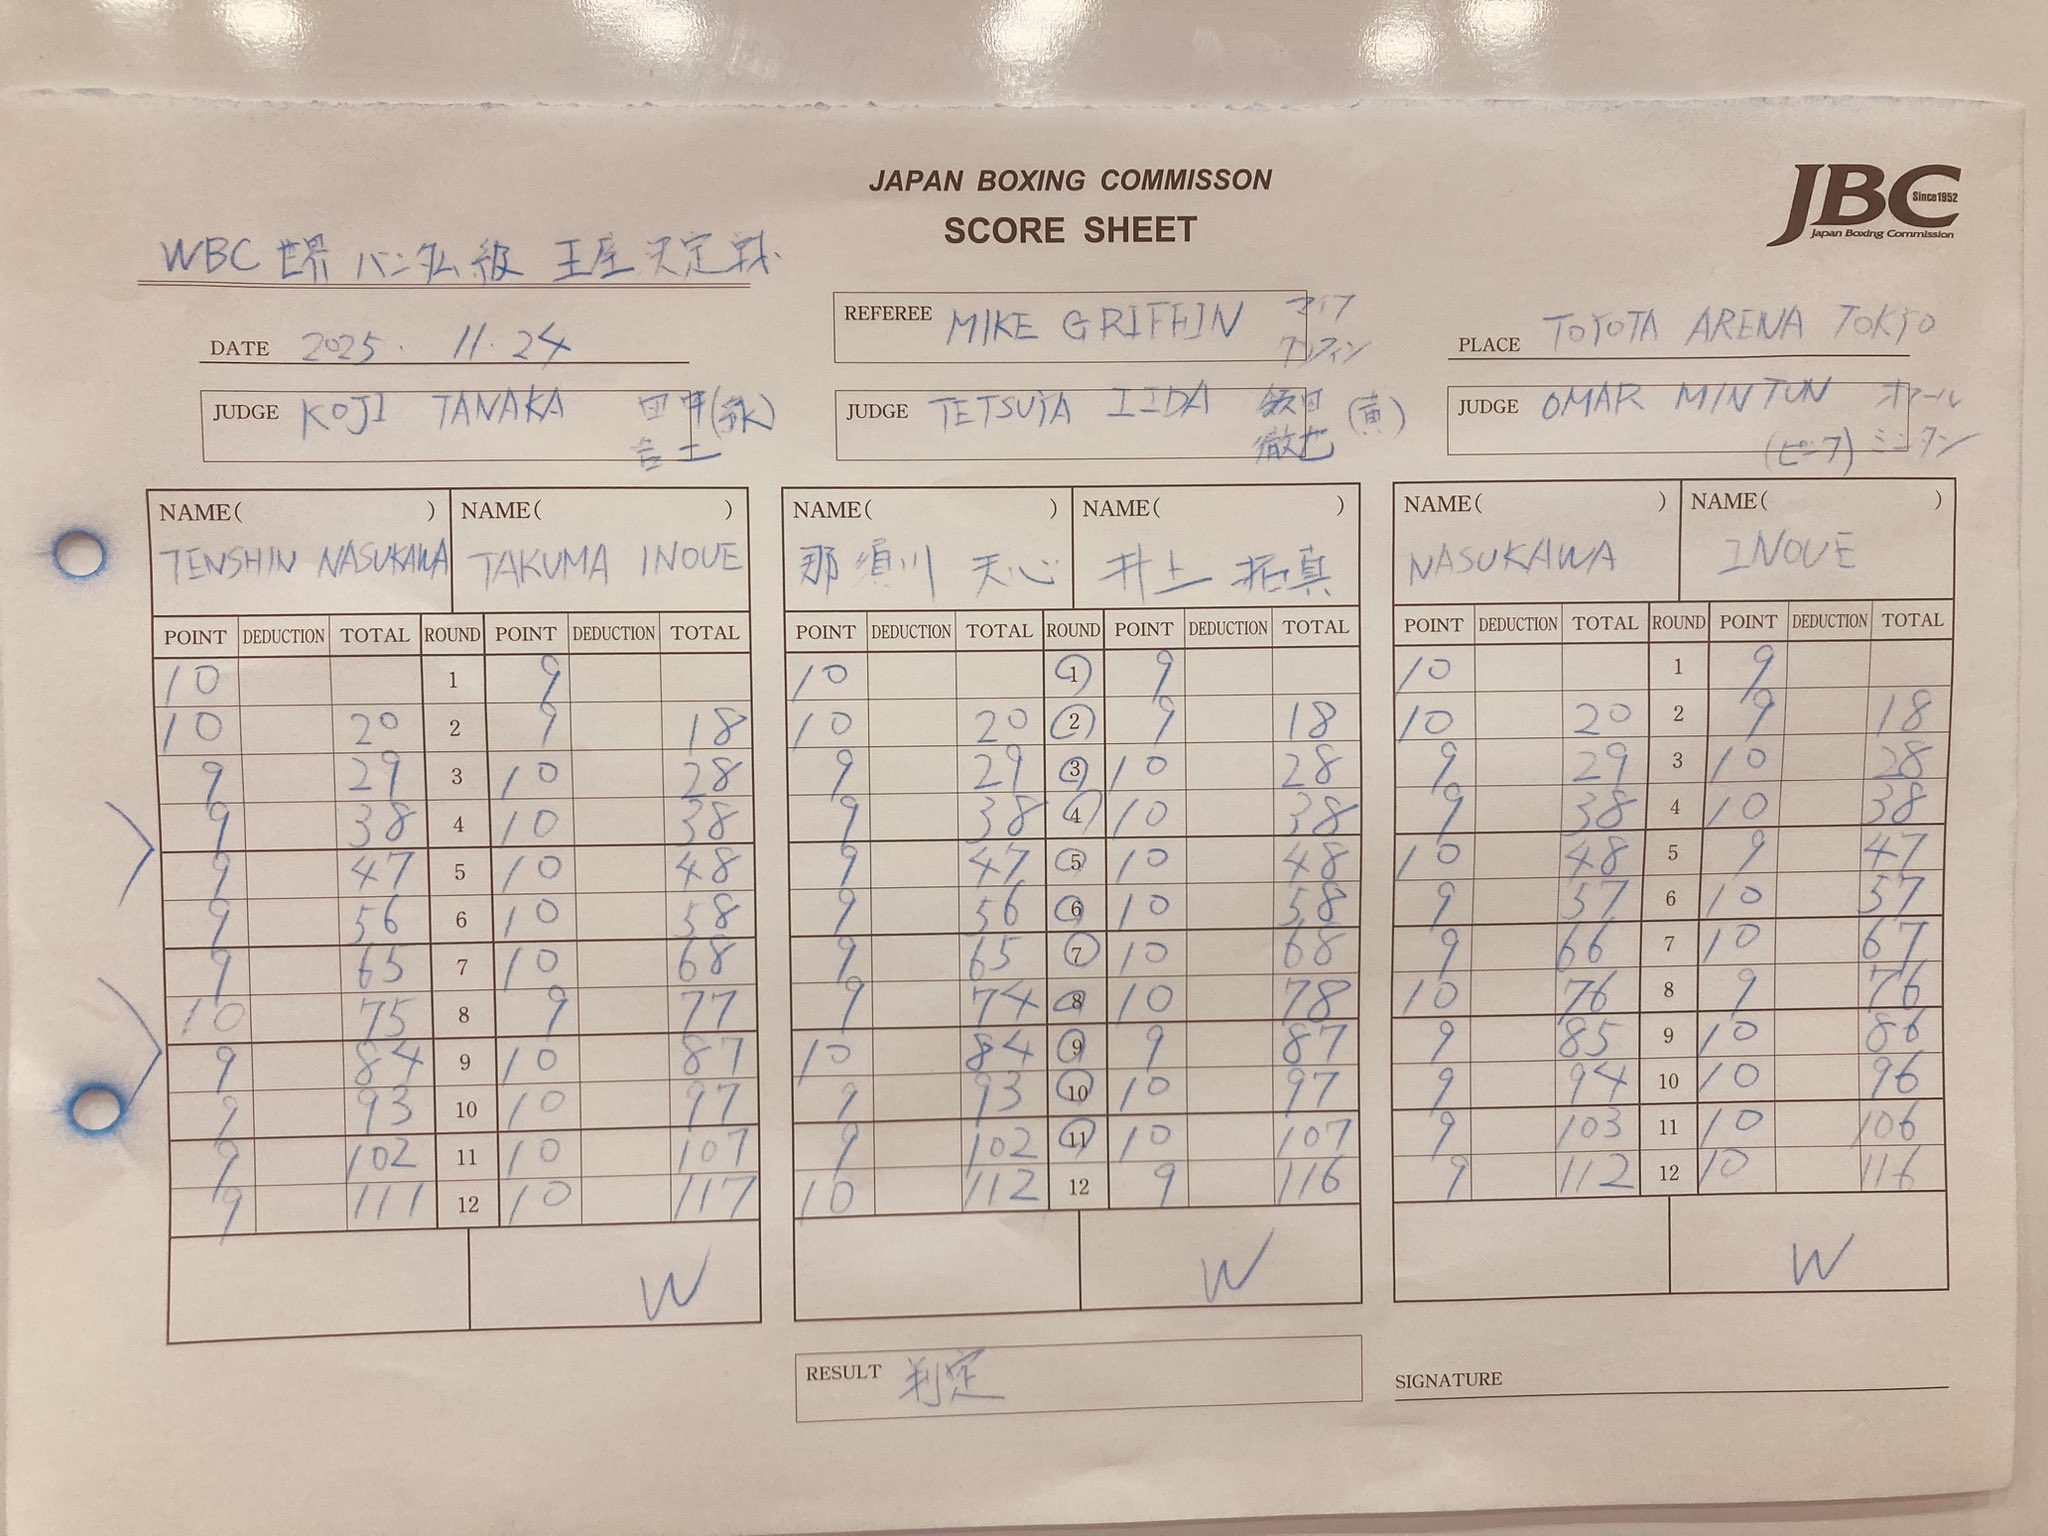 JAPAN BOXING COMMISSON
SCORE SHEET
JBC
Since1952
Japan Boxing Commission
WBC 世界 バンタム級 王座決定戦
DATE 2025. 11. 24
REFEREE MIKE GRIFFIN マイク グリフィン
PLACE TOYOTA ARENA TOKYO
JUDGE KOJI TANAKA 田中
JUDGE TETSUYA IIDA 飯田 徹也 (黄)
JUDGE OMAR MINTUN オマール ミンタン (ピンク)
NAME( ) NAME( ) NAME( ) NAME( ) NAME( ) NAME( )
TENSHIN NASUKAWA TAKUMA INOUE 那須川 天心 井上 拓真 NASUKAWA INOUE
POINT DEDUCTION TOTAL ROUND POINT DEDUCTION TOTAL POINT DEDUCTION TOTAL ROUND POINT DEDUCTION TOTAL POINT DEDUCTION TOTAL ROUND POINT DEDUCTION TOTAL
10 1 9 10 1 9 10 1 9
10 20 2 9 18 10 20 2 9 18 10 20 2 9 18
9 29 3 10 28 9 29 3 10 28 9 29 3 10 28
9 38 4 10 38 9 38 4 10 38 9 38 4 10 38
9 47 5 10 48 9 47 5 10 48 10 48 5 9 47
9 56 6 10 58 9 56 6 10 58 9 57 6 10 57
9 65 7 10 68 9 65 7 10 68 9 66 7 10 67
10 75 8 9 77 9 74 8 10 78 10 76 8 9 76
9 84 9 10 87 10 84 9 9 87 9 85 9 10 86
9 93 10 10 97 9 93 10 10 97 9 94 10 10 96
9 102 11 10 107 9 102 11 10 107 9 103 11 10 106
9 111 12 10 117 10 112 12 9 116 9 112 12 10 116
W W W
RESULT 判定
SIGNATURE